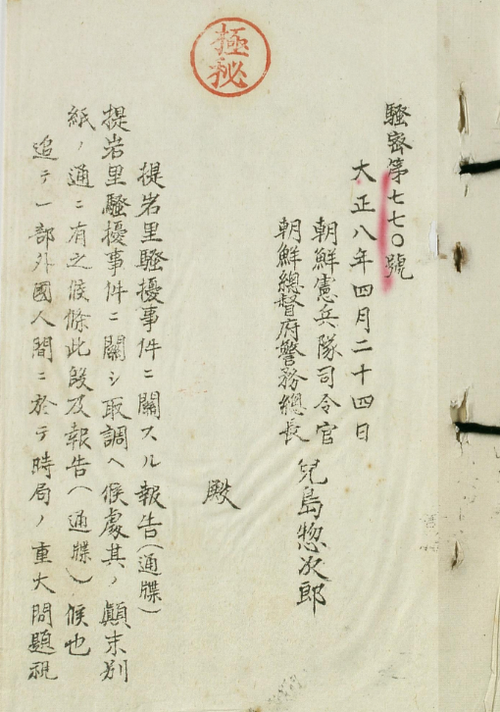 極秘
騷密第七七〇號
大正八年四月二十四日
朝鮮憲兵隊司令官
朝鮮總督府警務總長
兒島惣次郎
殿
提岩里騷擾事件ニ關スル報告(通牒)
提岩里騷擾事件ニ關シ取調ヘ候處其ノ顚末別
紙ノ通ニ有之候條此段及報告(通牒)候也
追テ一部外國人間ニ於テ時局ノ重大問題視